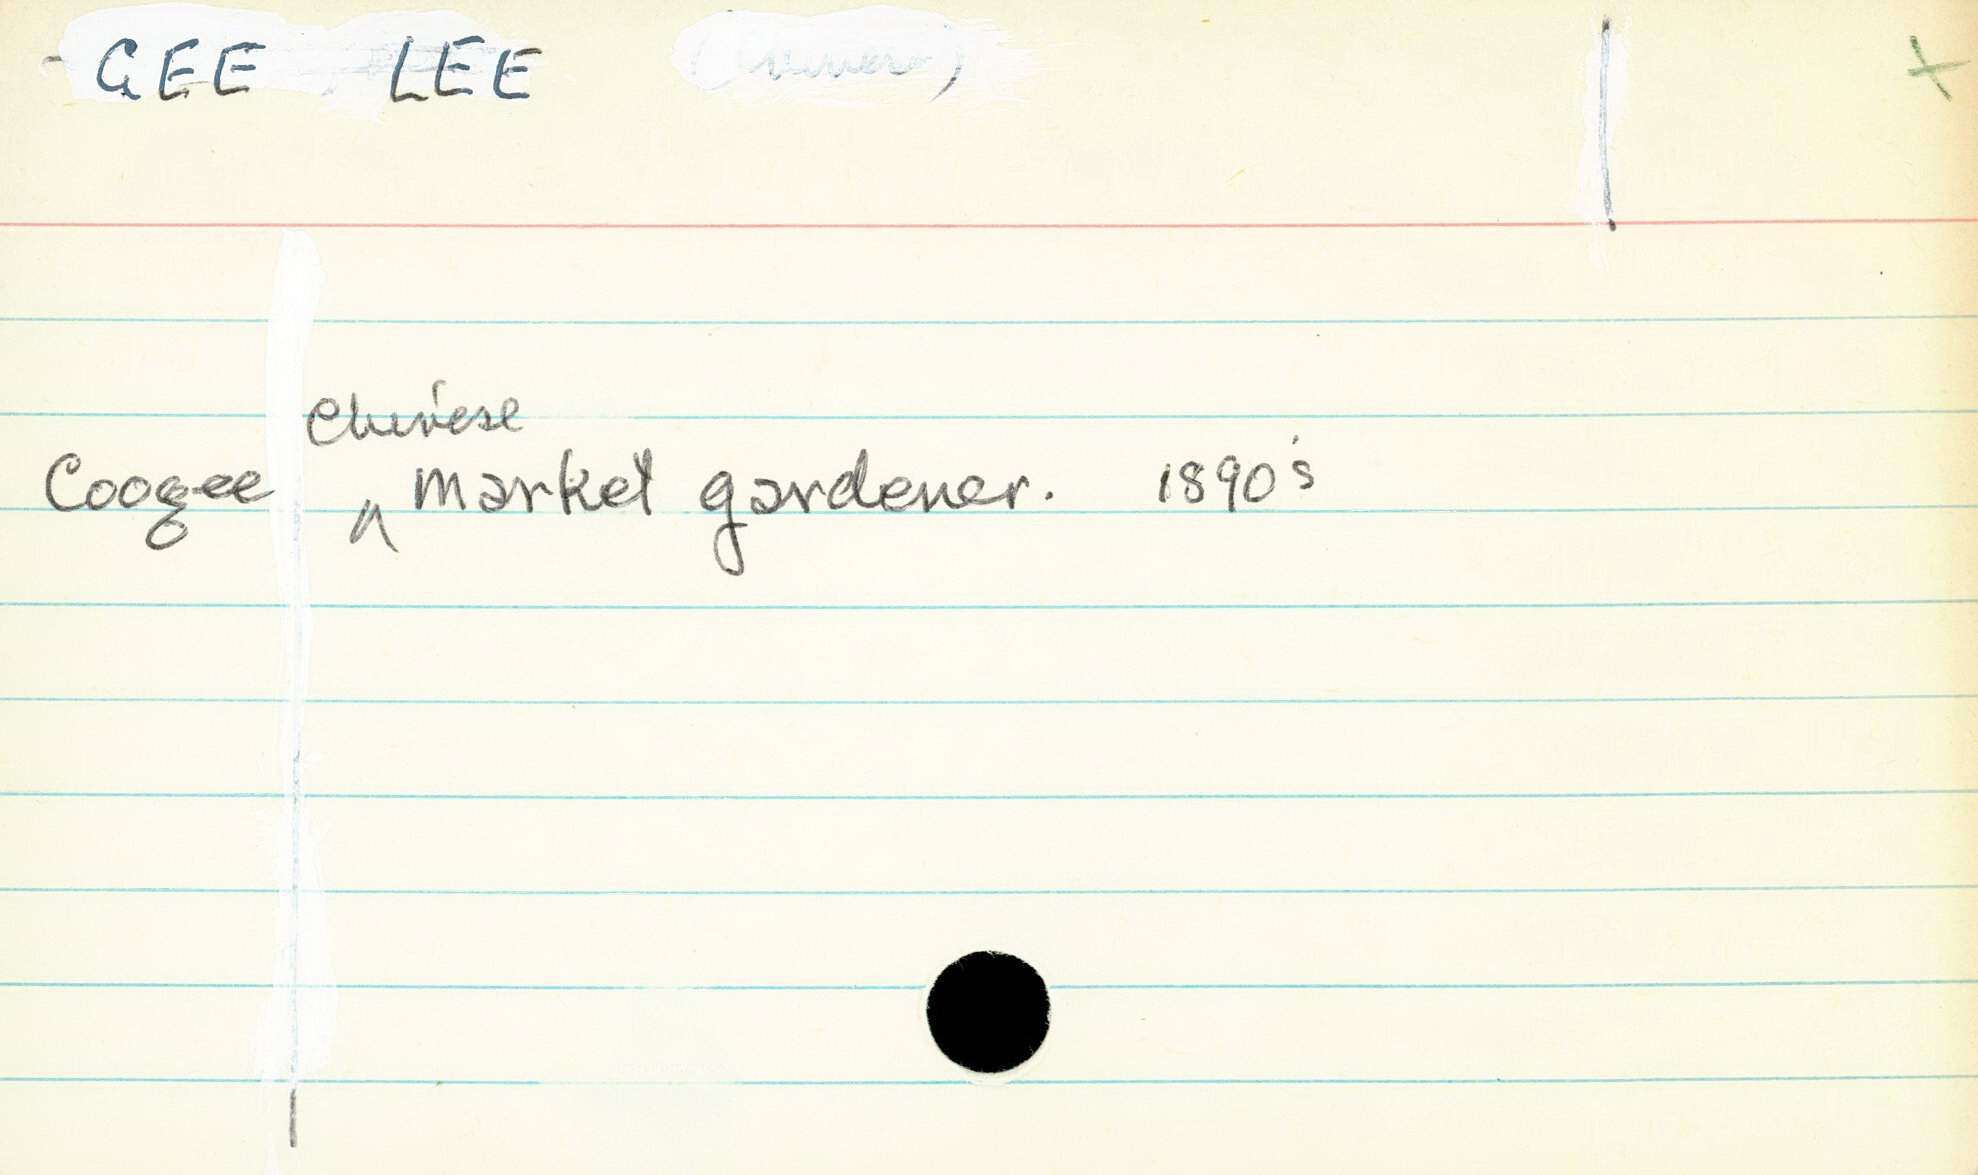 GEE LEE
Chinese
Coogee ^ market gardener. 1890's